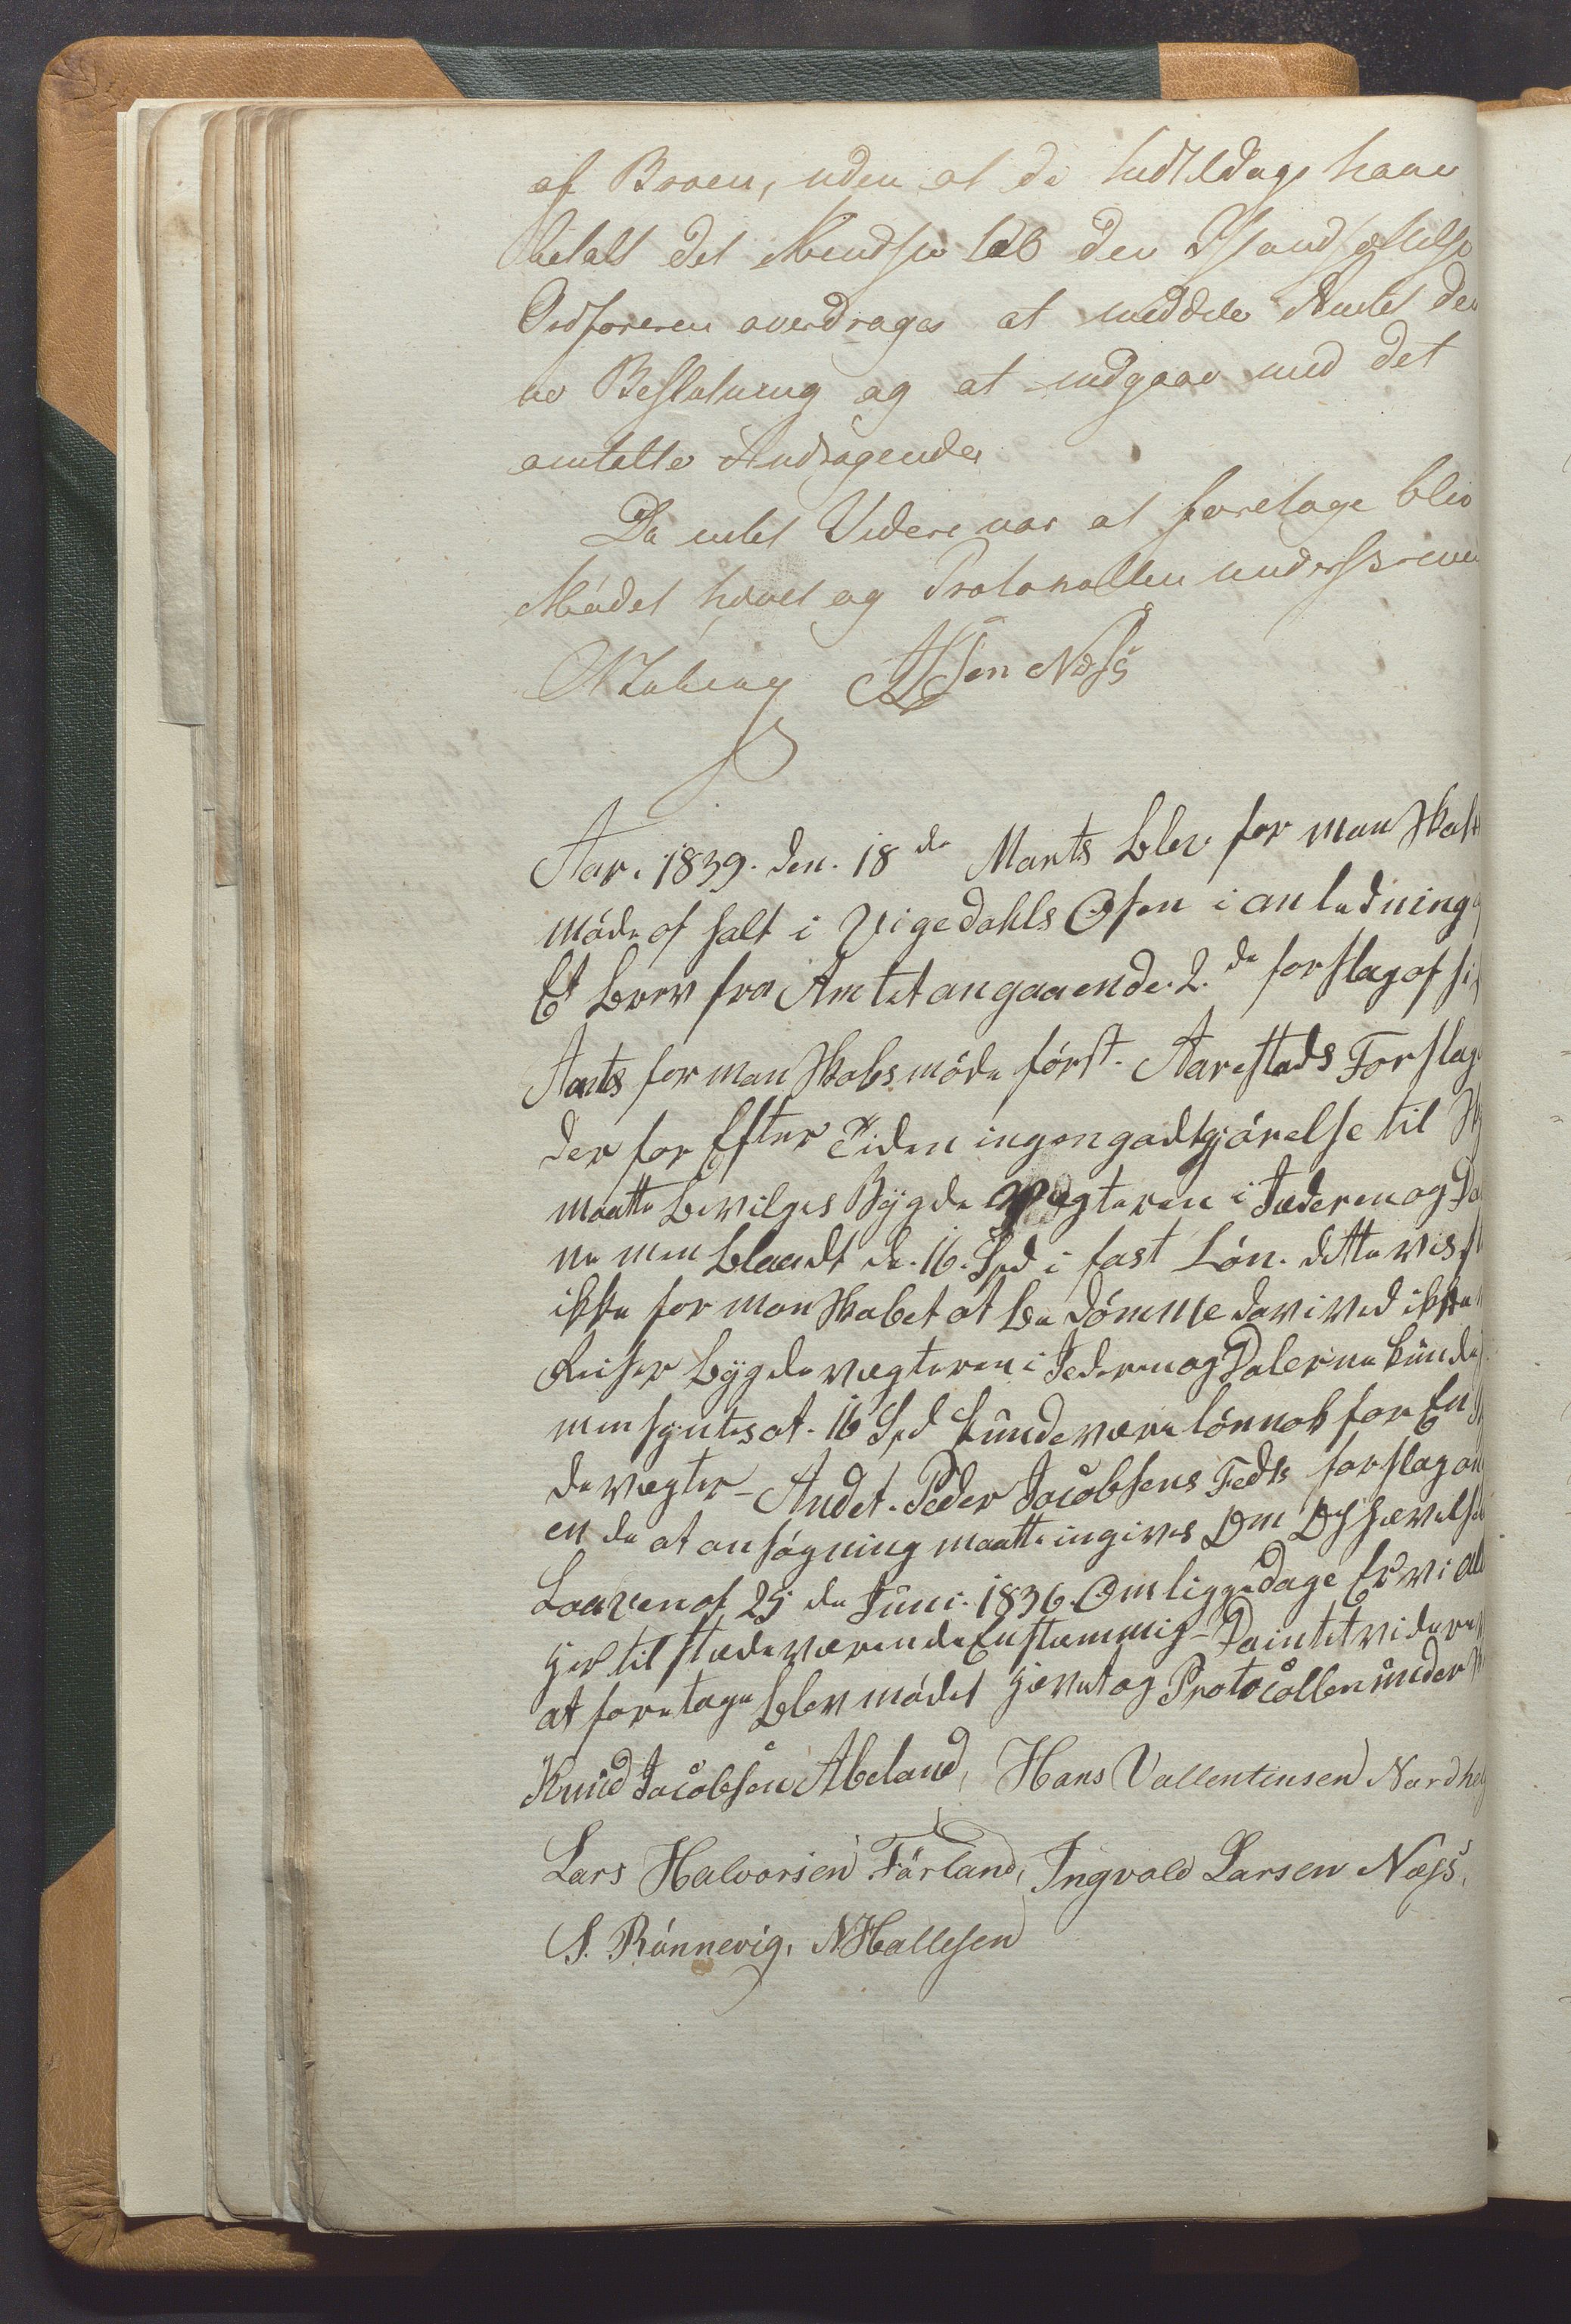 af Broen, uden at de hidtildags have
betalt det Mindste til den Istandsættelse
Ordføreren overdrages at meddele Amtet den
ne Beslutning og at indgaae med det
omtalte Andragende
Da intet Videre var at foretage blev
Mødet hævet og Protokollen underskreven
Næss
Aar. 1839. den. 18 de Marts blev formanskabs
møde af halt i Vigedahls Osen i anledning
Et brev fra Amtet angaaende. 2. de forslag af
Amts formanskabs møde først. Aarestads Forslag
der for Efter Tiden ingen godtgjørelse til
maatte bevilges Bygde vægteren i Jederen og Da
ne men blandt de. 16. Spd i fast Løn. dette
ikke for manskabet at be dømme da vi ved ikke
Reiser bygde vægteren i Jederen og Dalerne kunde
men syntes at. 16 Spd kunde være løn nok for En
de vægter - Andet. Peder Jacobsens Feds forslag
en de at ansøgning maatte ingives Om Ophævelse
Loaven af 25 de Juni. 1836. Om liggedage Er vi alle
her til stede værende Enstemmig - Da intet videre
at foretage blev mødet hævet og Protocollen under
Knud Jacobsen Abeland, Hans Vallentinsen Nordhe
Lars Halvorsen Førland, Ingvald Larsen Næss,
S. Rønnevig, N Hallesen